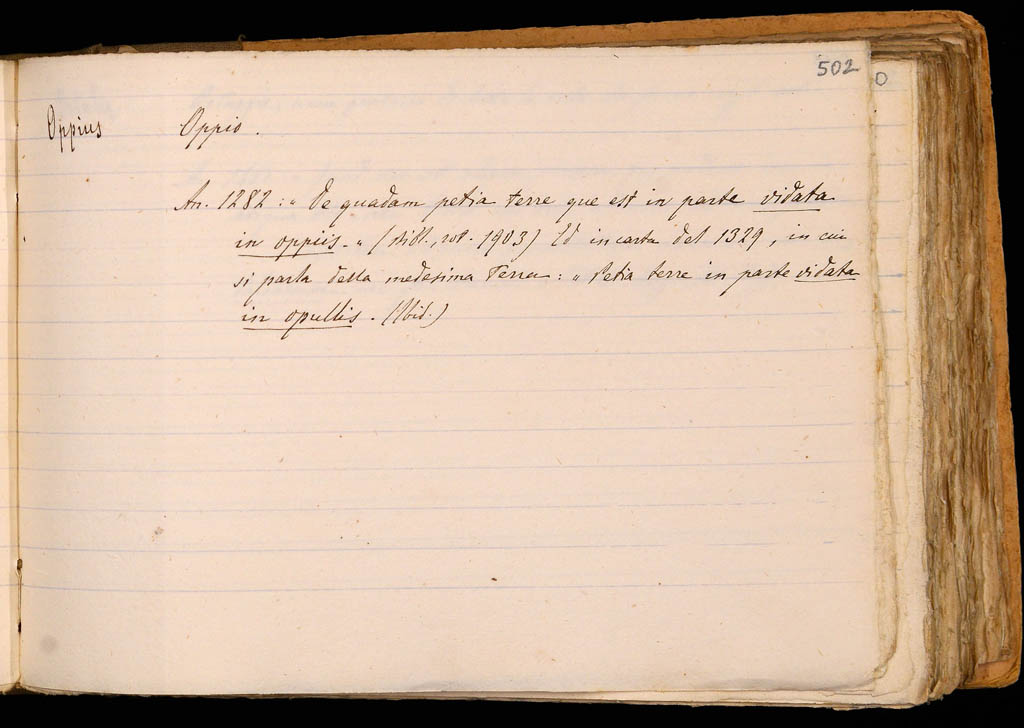 502
O
Oppius Oppio.
An. 1282 : „ De quadam petia terre que est in parte vidata
in oppiis. „ ( , rot. 1903) Ed in carta del 1329, in cui
si parla della medesima Terra : „ Petia terre in parte vidata
in opullis. (Ibid.)